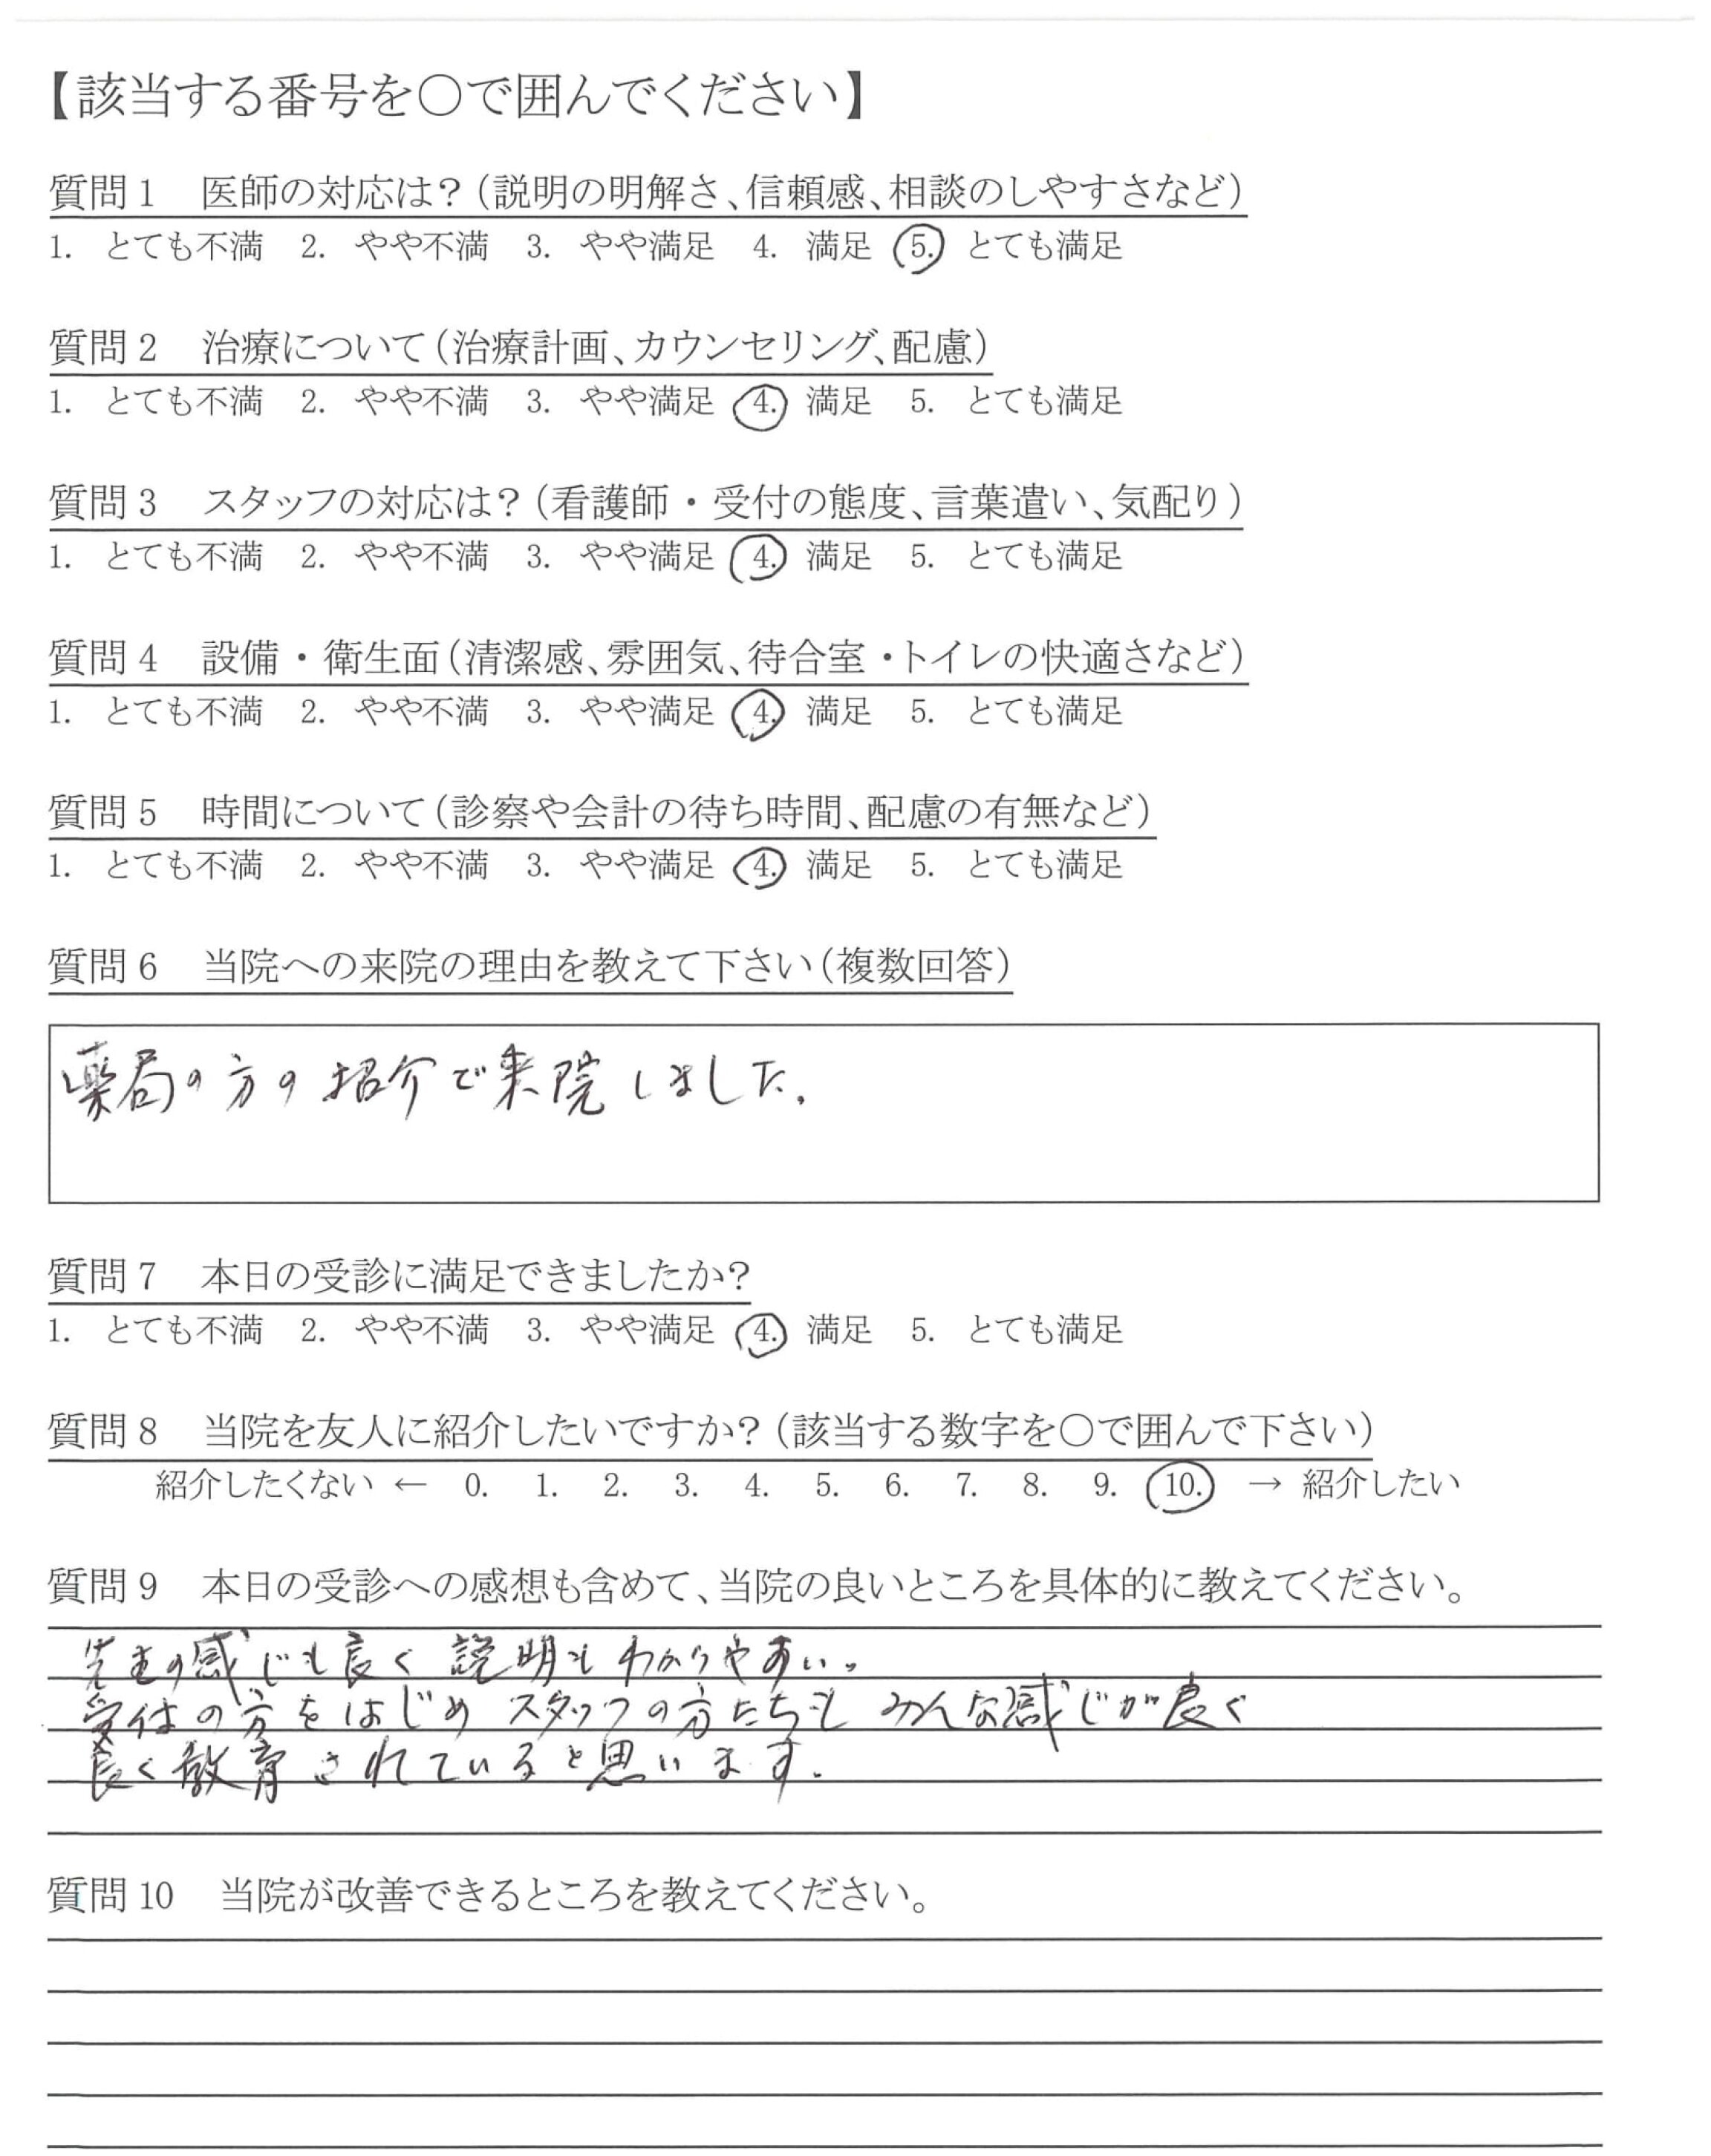 【該当する番号を〇で囲んでください】
質問1　医師の対応は？（説明の明解さ、信頼感、相談のしやすさなど）
1. とても不満　2. やや不満　3. やや満足　4. 満足　5. とても満足
質問2　治療について（治療計画、カウンセリング、配慮）
1. とても不満　2. やや不満　3. やや満足　4. 満足　5. とても満足
質問3　スタッフの対応は？（看護師・受付の態度、言葉遣い、気配り）
1. とても不満　2. やや不満　3. やや満足　4. 満足　5. とても満足
質問4　設備・衛生面（清潔感、雰囲気、待合室・トイレの快適さなど）
1. とても不満　2. やや不満　3. やや満足　4. 満足　5. とても満足
質問5　時間について（診察や会計の待ち時間、配慮の有無など）
1. とても不満　2. やや不満　3. やや満足　4. 満足　5. とても満足
質問6　当院への来院の理由を教えて下さい（複数回答）
薬局の方の紹介で来院しました.
質問7　本日の受診に満足できましたか？
1. とても不満　2. やや不満　3. やや満足　4. 満足　5. とても満足
質問8　当院を友人に紹介したいですか？（該当する数字を〇で囲んで下さい）
紹介したくない ← 0. 1. 2. 3. 4. 5. 6. 7. 8. 9. 10. → 紹介したい
質問9　本日の受診への感想も含めて、当院の良いところを具体的に教えてください。
先生の感じも良く 説明もわかりやすい。
受付の方をはじめ スタッフの方たちも みんな感じが良く
良く教育されていると思います.
質問10　当院が改善できるところを教えてください。